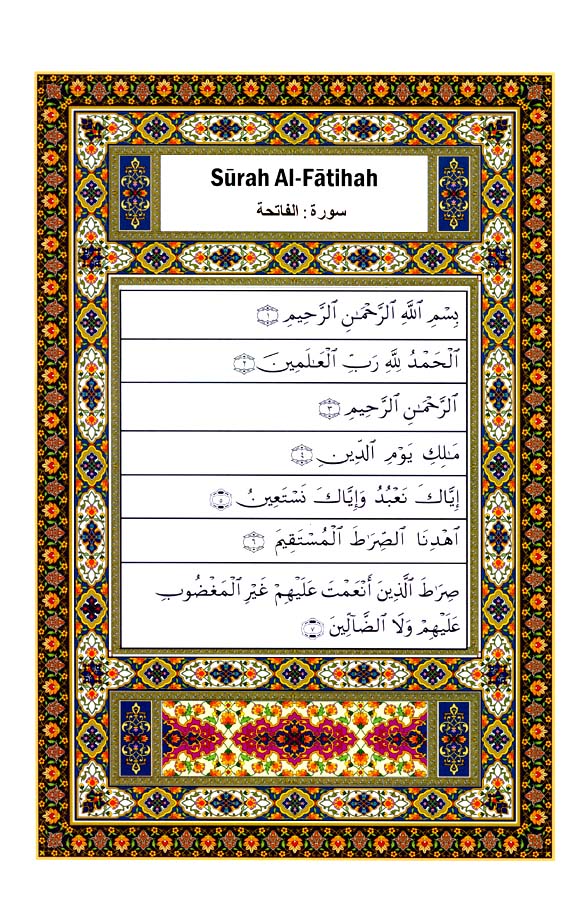 Sūrah Al-Fātihah
سورة : الفاتحة
بِسْمِ ٱللَّهِ ٱلرَّحْمَـٰنِ ٱلرَّحِيمِ ١
ٱلْحَمْدُ لِلَّهِ رَبِّ ٱلْعَـٰلَمِينَ ٢
ٱلرَّحْمَـٰنِ ٱلرَّحِيمِ ٣
مَـٰلِكِ يَوْمِ ٱلدِّينِ ٤
إِيَّاكَ نَعْبُدُ وَإِيَّاكَ نَسْتَعِينُ ٥
ٱهْدِنَا ٱلصِّرَٰطَ ٱلْمُسْتَقِيمَ ٦
صِرَٰطَ ٱلَّذِينَ أَنْعَمْتَ عَلَيْهِمْ غَيْرِ ٱلْمَغْضُوبِ
عَلَيْهِمْ وَلَا ٱلضَّآلِّينَ ٧